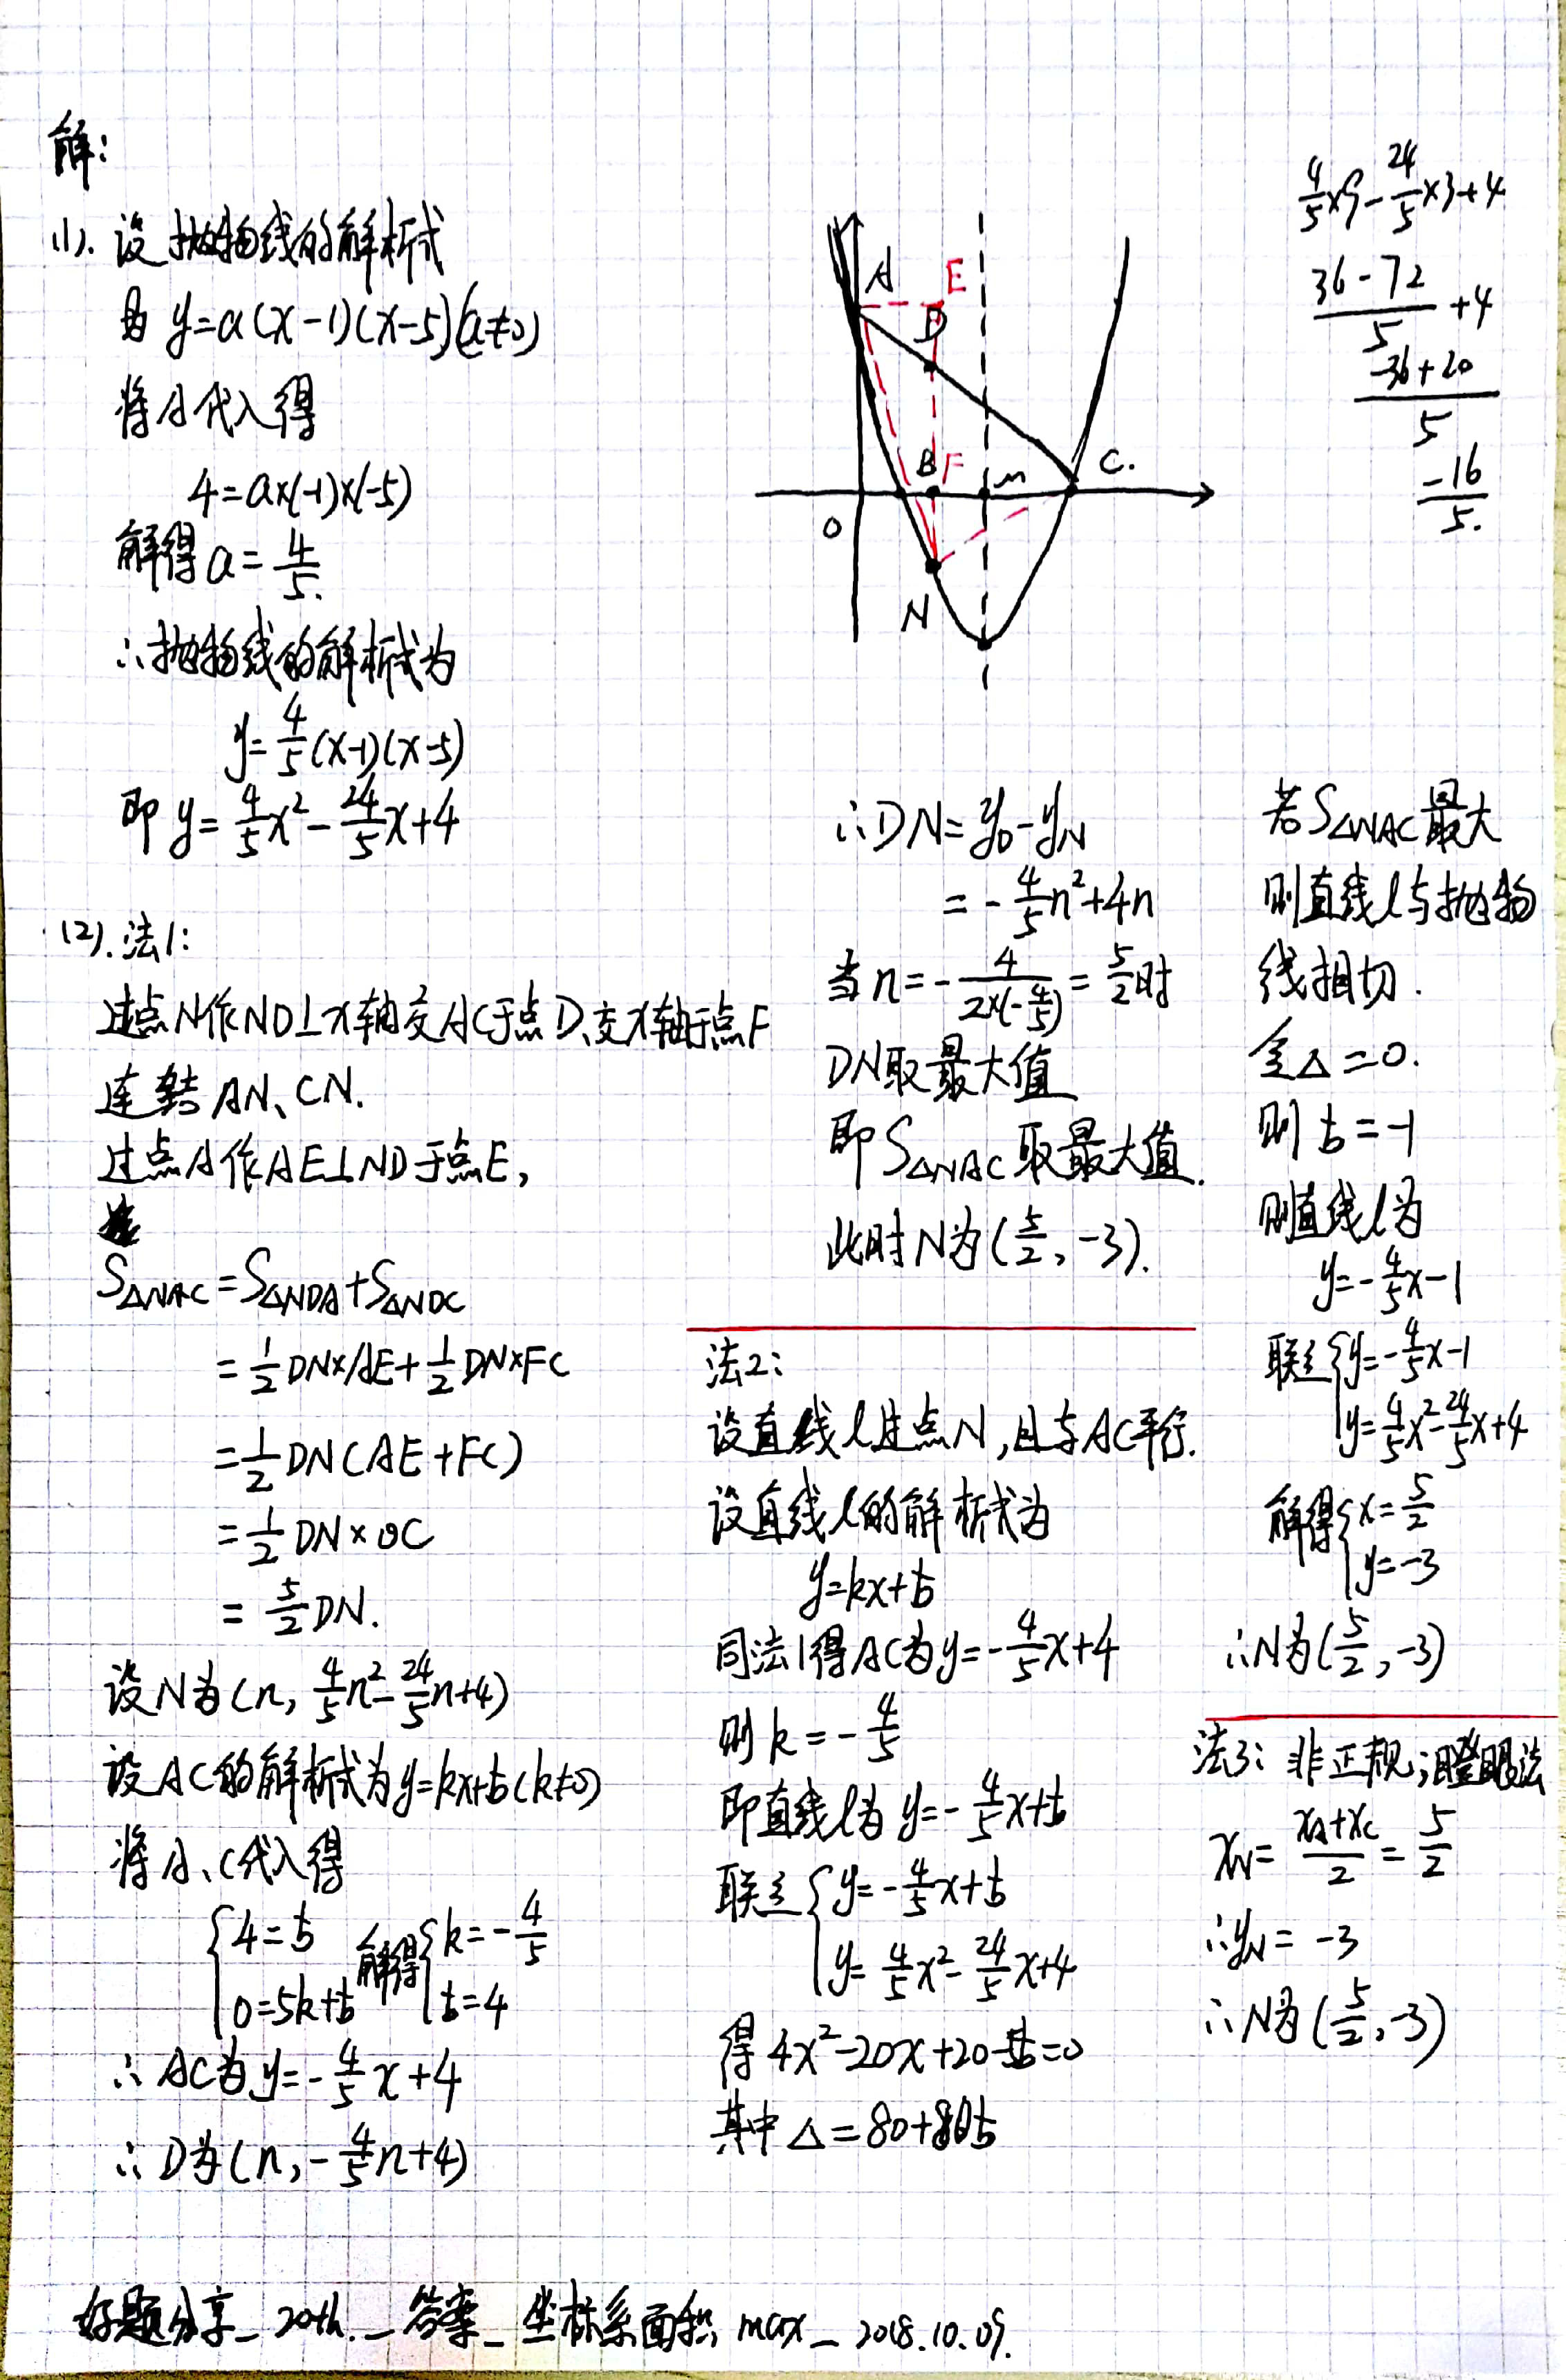 解:
(1). 设抛物线的解析式
为 y=a(x-1)(x-5)(a≠0)
将A代入得
4=a×(-1)×(-5)
解得 a=4/5.
∴抛物线的解析式为
y=4/5(x-1)(x-5)
即 y=4/5x²-24/5x+4
(2). 法1:
过点N作ND⊥x轴交AC于点D、交x轴于点F
连结 AN、CN.
过点A作AE⊥ND于点E,
S△NAC=S△NDA+S△NDC
=1/2DN×AE+1/2DN×FC
=1/2DN(AE+FC)
=1/2DN×OC
=5/2DN.
设N为(n, 4/5n²-24/5n+4)
设AC的解析式为y=kx+b(k≠0)
将A、C代入得
{4=b 解得{k=-4/5
0=5k+b b=4
∴AC为y=-4/5x+4
∴D为(n,-4/5n+4)
A
E
D
B
F
m
C.
O
N
4/5×9-24/5×3+4
(36-72)/5+4
(-36+20)/5
-16/5.
∴DN=yD-yN
=-4/5n²+4n
当n=-4/(2×(-4/5))=5/2时
DN取最大值
即S△NAC取最大值.
此时N为(5/2,-3).
法2:
设直线l过点N,且与AC平行.
设直线l的解析式为
y=kx+b
同法1得AC为y=-4/5x+4
则k=-4/5
即直线l为y=-4/5x+b
联立{y=-4/5x+b
y=4/5x²-24/5x+4
得4x²-20x+20-5b=0
其中△=80+80b
若S△NAC最大
则直线l与抛物
线相切.
令△=0.
则b=-1
则直线l为
y=-4/5x-1
联立{y=-4/5x-1
y=4/5x²-24/5x+4
解得{x=5/2
y=-3
∴N为(5/2,-3)
法3: 非正规;瞪眼法
xN=(xA+xC)/2=5/2
∴yN=-3
∴N为(5/2,-3)
好题分享_20th._答案_坐标系面积max_2018.10.09.